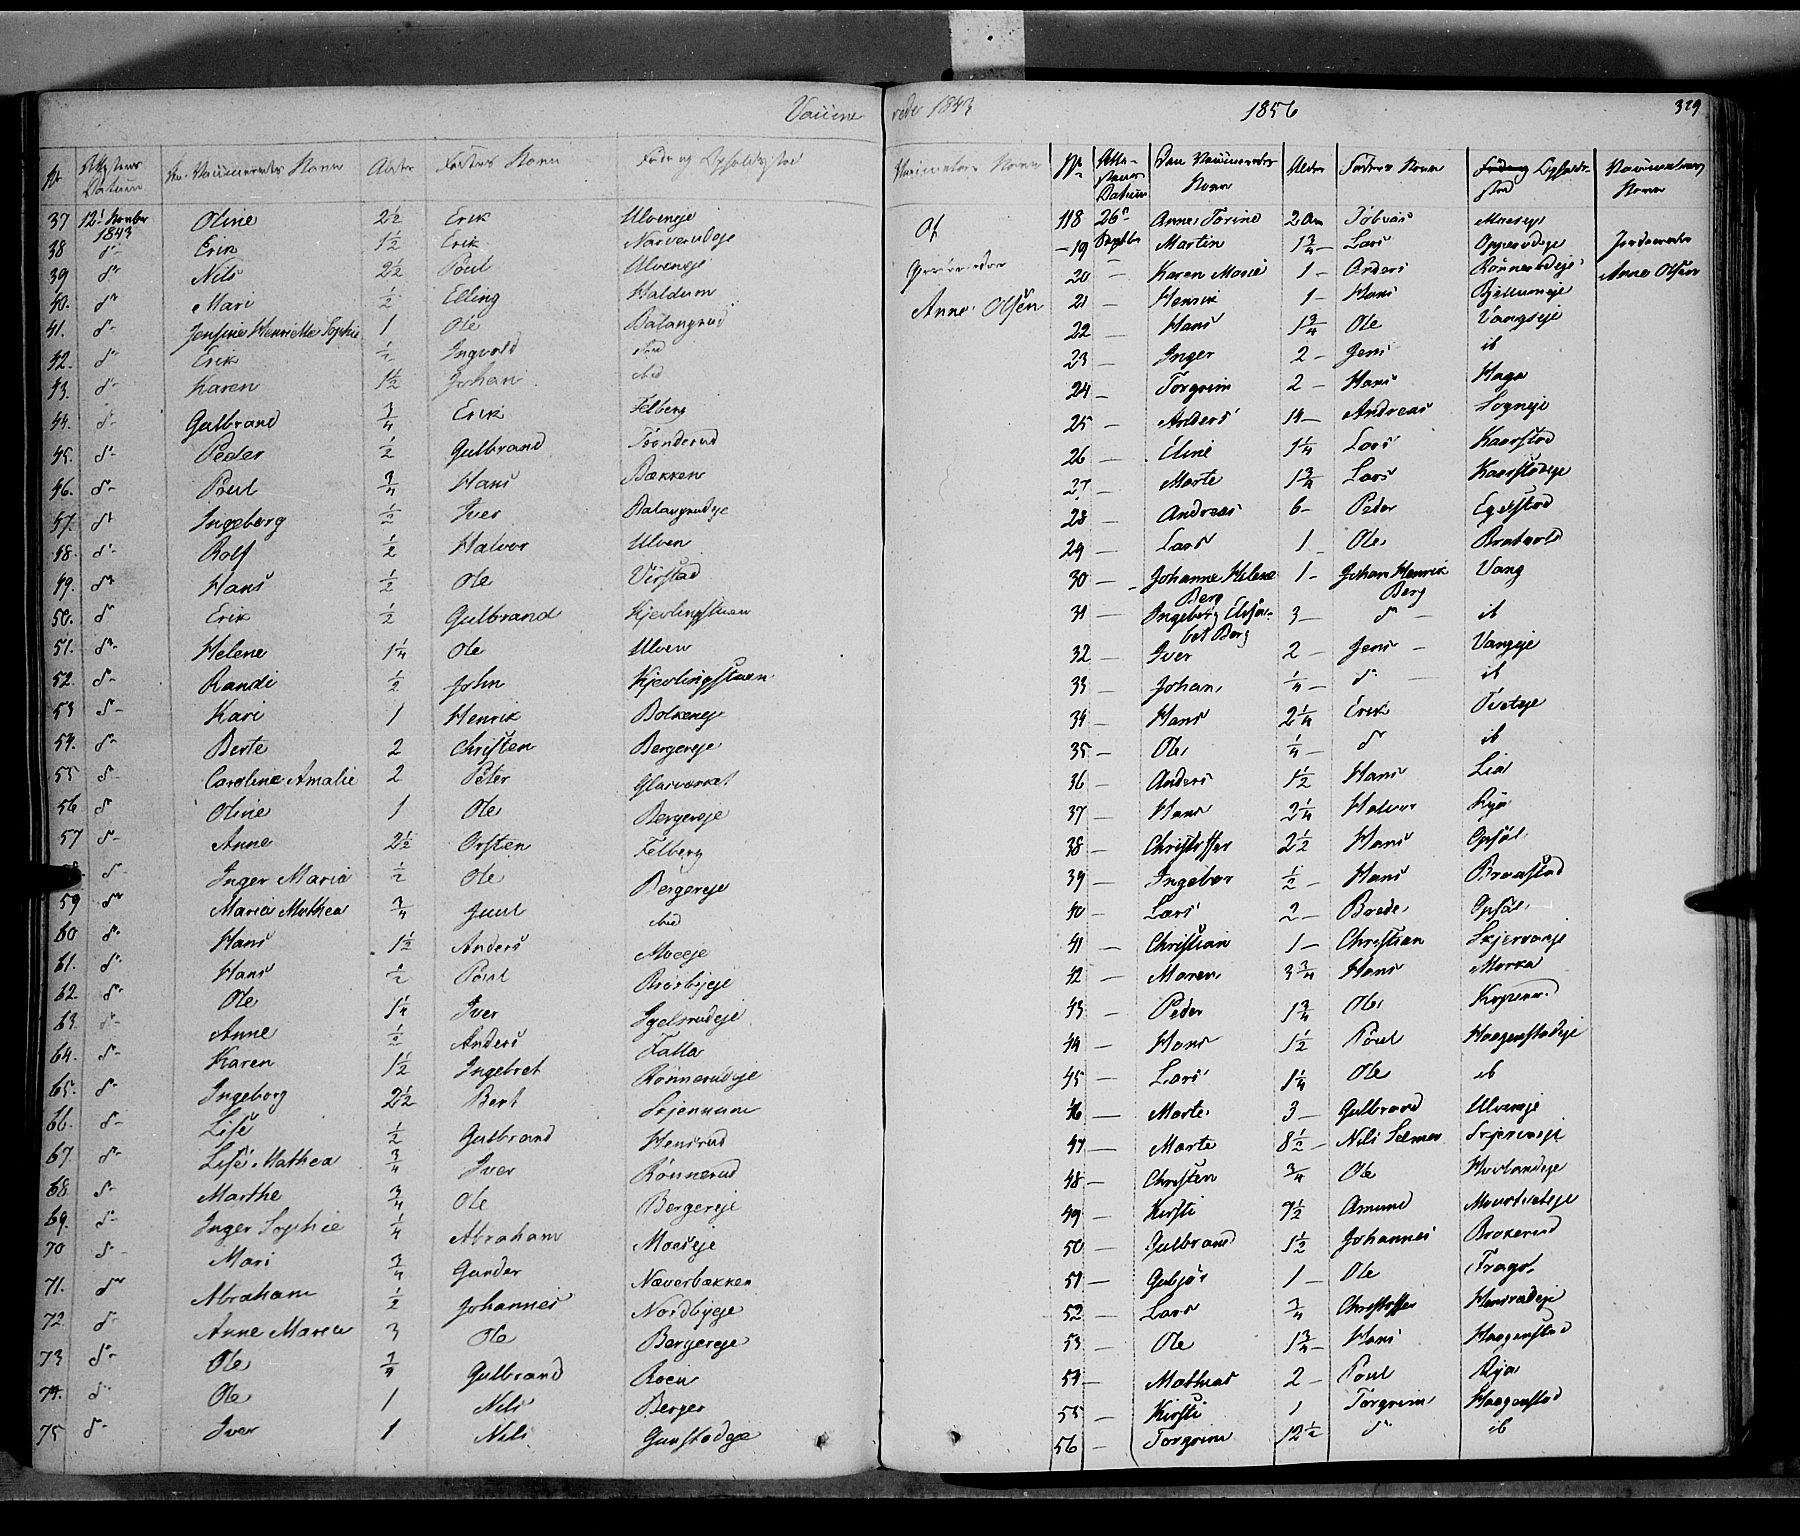 Vaccine
rede 1843
1856
329
No Attestens Datum De Vaccineredes Navn Alder Fadrens Navn Føde og Opholdssted
37 12t 1843 Oline 2 1/2 Erik Ulveneje
38 do Erik 1 1/2 Erik Narverudeje
39 do Nils 2 1/2 Poul Ulveneje
40. do Mari 1/2 Elling Haldum
41. do Jensine Henriette Sophie 1 Ole Balangrud
42. do Erik 1/2 Ingvold ibid
43. do Karen 1 1/2 Johan ibid
44. do Gulbrand 3/4 Erik Felberg
45. do Peder 1/2 Gulbrand Tønderud
46. do Poul 3/4 Hans Bækken
47. do Ingeborg 1/2 Iver Balangrudeje
48. do Rolf 1/2 Halvor Ulven
49. do Hans 1/2 Ole Virstad
50. do Erik 1/2 Gulbrand Kjevlingstuen
51. do Helene 1 1/4 Ole Ulven
52. do Randi 1/2 John Kjevlingstuen
53 do Kari 1 Henrik Bolkeneje
54. do Berte 2 Christen Bergereje
55 do Caroline Amalie 2 Peter Glasværket
56 do Oline 1 Ole Bergereje
57 do Anne 2 1/2 Orsten Felberg
do Inger Maria 1/2 Ole Bergereje
59 do Maria Mathea 3/4 Juul ibid
60 do Hans 1 1/2 Anders Moeeje
61. do Hans 1/2 Poul
62 do Ole 1 1/4 Iver Igelsrudeje
63. do Anne 1/2 Anders Falla
64. do Karen 1 1/2 Ingebret Rönnerudeje
65. do Ingeborg 2 1/2 Bert Skjennum
66. do Lise 1/2 Gulbrand Hensrud
67 do Lise Mathea 3/4 Iver Rönnerud
68 do Marthe 3/4 Ole Bergereje
69. do Inger Sophie 1/4 Abraham Moeseje
70 do Mari 3/4 Gunder Næverbækken
71. do Abraham 1/2 Johannes Nordbyeje
72 do Anne Maria 3 Ole Bergereje
73 do Ole 3/4 Gulbrand Roen
74. do Ole 1 Nils Berger
75 do Iver 1 Nils Gunstadeje
Vaccinators Navn
Af
Gjordemoder
Anne Olsen
No Attestens Datum Den Vaccineredes Navn Alder Fadrens Navn Føde og Opholdssted Vaccinatørens Navn
118 26de Anne Torine 2 Aar Tobias
19 Septbr Martin 1 3/4 Lars Opperudeje Jordemoder
20 Karen Marie 1 Anders Rönnerudeje Anne Olsen
21 Henrik 1 Hans Bjellumeje
22 Hans 1 3/4 Ole Vangseje
23 Inger 2 Jens ib
24 Torgrim 2 Hans Haga
25 Anders Andreas Sogneje
26 Eline 1 1/4 Lars Kaarstad
27 Marte 1 3/4 Lars Kaarstadeje
28 Andreas 6 Peder Egelstad
29 Lars 1 Ole
30 Johanne Helene Berg 1 Johan Henrik Berg Vang
31 Ingeborg Elisabet Berg 3 do ib
32 Iver 2 Jens Vangeje
33 Johan 1/4 do ib
34 Hans 2 1/4 Erik Tveteje
35 Ole 1/4 do ib
36 Anders 1 1/2 Hans Lia
37 Hans 2 1/4 Halvor Rya
38 Christoffer 2 1/2 Hans Opsal
39 Ingebor 1/2 Hans Braastad
40 Lars 2 Brede Opsal
41 Christian 1 Christian Skjervangeje
42 Maren 3 3/4 Hans Morka
43 Peder 1 3/4 Ole
44 Hans 1 1/2 Poul Haagenstadeje
45 Lars 1 1/4 Ole ib
46 Marte 3 Gulbrand Ulveneje
47 Marte 8 1/2 Nils Selmer
48 Christen 3/4 Ole Hovlandeje
49 Kirsti 9 1/2 Amund
50 Gulbrand 1 1/2 Johannes Brokerud
51 Gubjør 1 Ole
52 Lars 3/4 Christoffer Hensrudeje
53 Ole 1 3/4 Hans Haagenstad
54 Mathias 2 Poul Rya
55 Kirsti 1 Torgrim Haagenstad
56 Torgrim 12 1/2 do ib